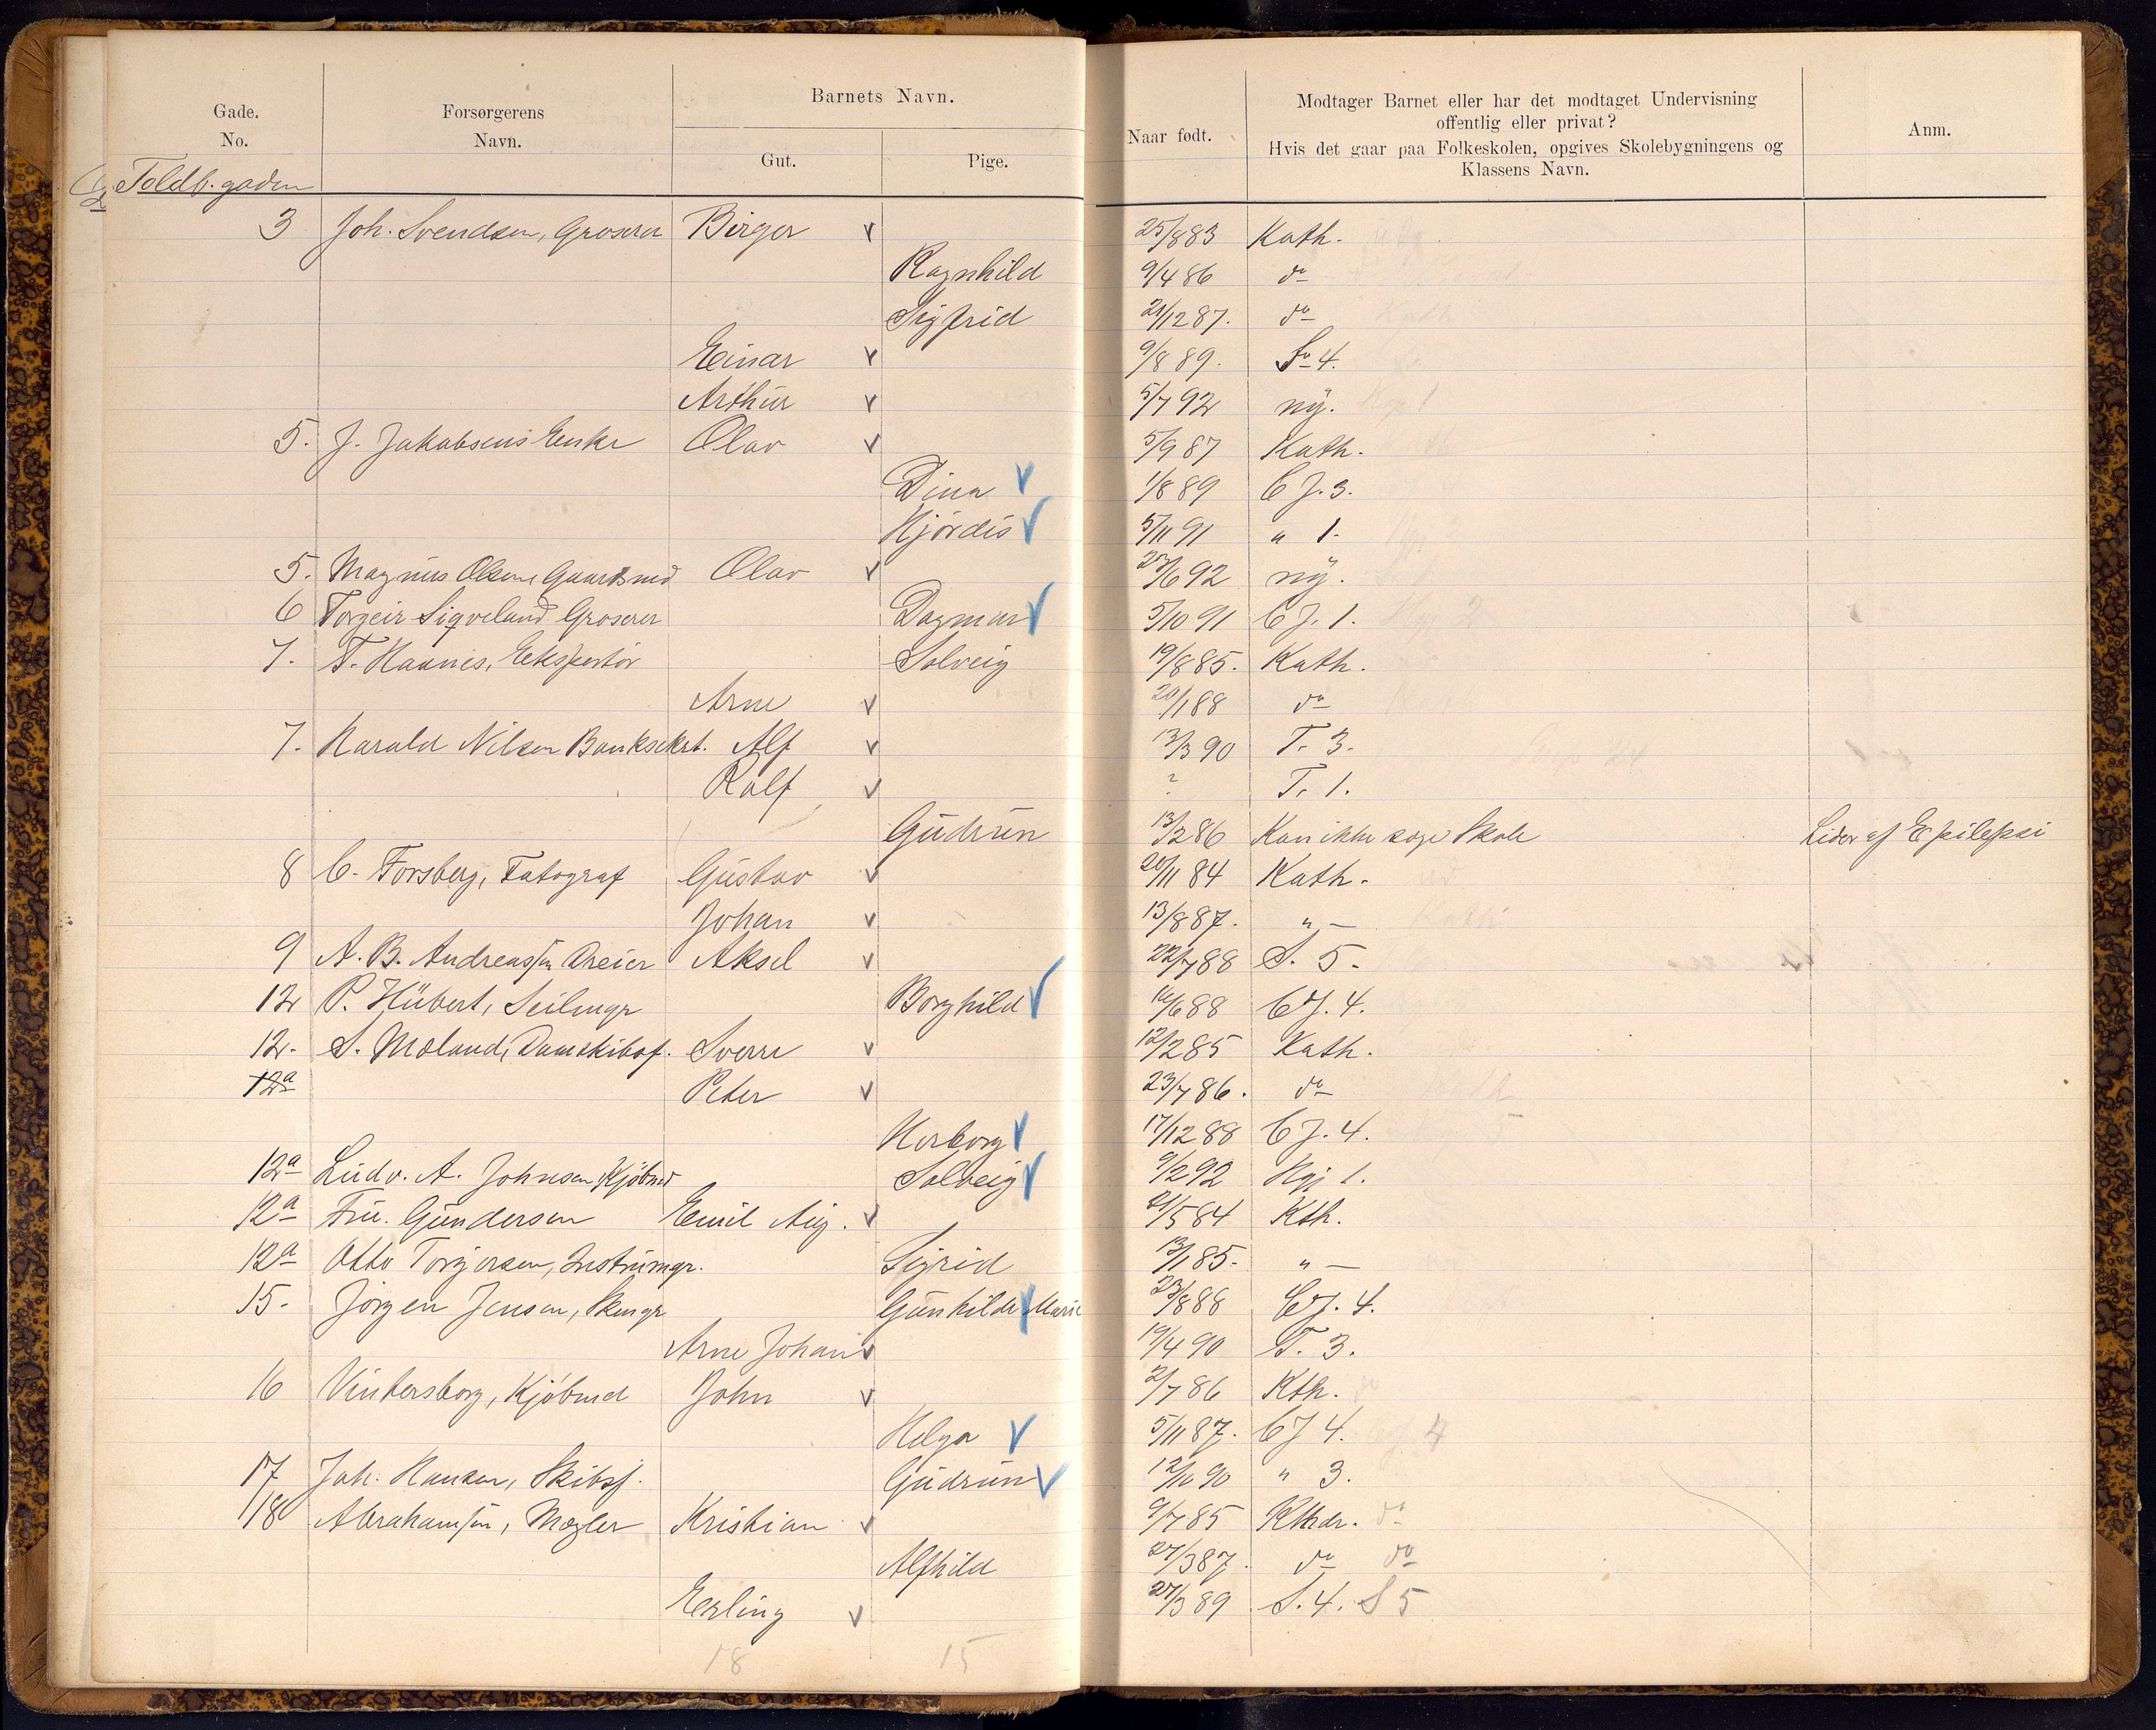 Gade.
No.
Forsørgerens
Navn.
Barnets Navn.
Gut.
Pige.
Naar født.
Modtager Barnet eller har det modtaget Undervisning
offentlig eller privat?
Hvis det gaar paa Folkeskolen, opgives Skolebygningens og
Klassens Navn.
Anm.
Toldb. gaden
3 Joh. Svendsen, Groserer Birger v 25/8 83 Kath.
Ragnhild 9/4 86 do
Sigfrid 21/12 87. do
Einar v 9/8 89. So 4.
Arthur v 5/7 92 ny.
5. J. Jakobsens Enke Olav v 5/9 87 Kath.
Dina v 1/8 89 C J. 3.
Hjördis v 5/11 91 " 1.
5. Magnus Olsen, Olav v 27/6 92 ny.
6 Torgeir Sigveland Groserer Dagmar v 5/10 91 C J. 1.
7. T. Haunes, Ekspertör Solveig 19/8 85. Kath.
Arne v 20/1 88 do
7. Harald Nilsen Banksekrt. Alf v 13/3 90 T. 3.
Ralf v ? T. 1.
Gudrun 13/2 86 Kan ikke søge Skole Lider af Epilepsi
8 C. Forsberg, Fatograf Gustav v 20/11 84 Kath.
Johan v 13/8 87. " —
9 A. B. Andreassen Dreier Aksel v 22/7 88 S. 5.
12 P. Hübert, Seilmgr Borghild v 16/6 88 C J. 4.
12. S. Moland, Damskibsf. Sverre v 12/2 85 Kath.
12a Peter v 23/7 86. do
Herborg v 17/12 88 C J. 4.
12a Ludv. A. Johnsen Kjöbmd Solveig v 9/2 92 Hgj 1.
12a Fru. Gundersen Emil Aug. v 21/5 84 Kth.
12a Otto Torjersen, Instrumgr. Sigrid 13/1 85. " —
15. Jörgen Jensen, Skmgr Gunhilde v Marie 23/8 88 C J. 4.
Arne Johan v 19/4 90 T. 3.
16 Vintersborg, Kjöbmd John v 2/7 86 Kth.
Helga v 5/11 87. C J 4. 4
17 Joh. Hansen, Skibsf. Gudrun v 12/10 90 " 3.
18 Abrahamsen, Mægler Kristian v 9/7 85 Kthdr. do
Alfhild 27/3 87. do do
Erling v 27/3 89 S. 4. S 5
18 15